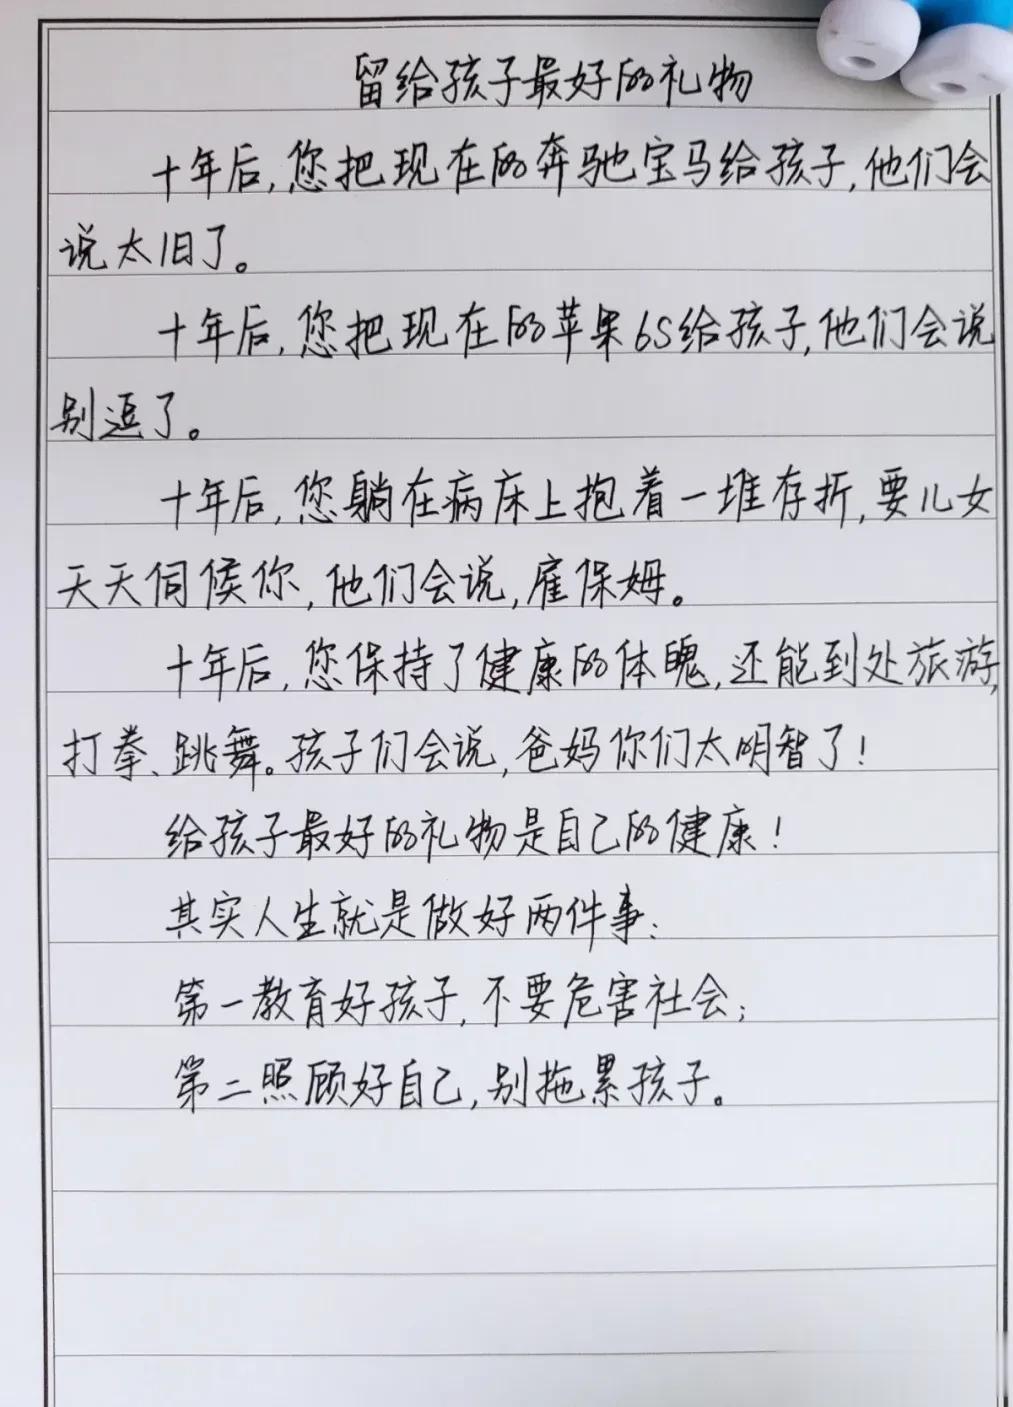 留给孩子最好的礼物
十年后,您把现在的奔驰宝马给孩子,他们会
说太旧了。
十年后,您把现在的苹果6S给孩子,他们会说
别逗了。
十年后,您躺在病床上抱着一堆存折,要儿女
天天伺候你,他们会说,雇保姆。
十年后,您保持了健康的体魄,还能到处旅游,
打拳、跳舞。孩子们会说,爸妈你们太明智了!
给孩子最好的礼物是自己的健康!
其实人生就是做好两件事:
第一教育好孩子,不要危害社会;
第二照顾好自己,别拖累孩子。